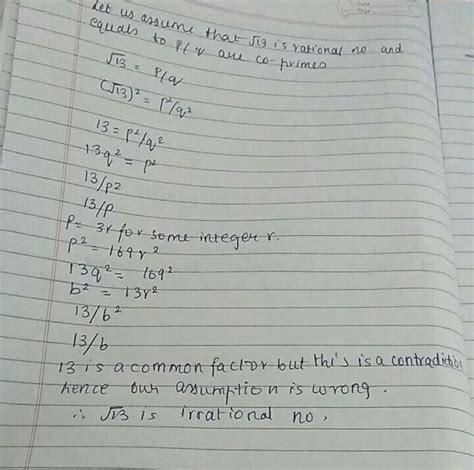 Let us assume that √13 is rational no and
equals to p/q are co-primes
√13 = P/q
(√13)² = P²/q²
13 = P²/q²
13q² = p²
13/p2
13/p
P = 3r for some integer r.
p² = 169r²
13q² = 169²
b² = 13r²
13/b²
13/b
13 is a common factor but this is a contradiction
hence our assumption is wrong.
∴ √13 is irrational no,